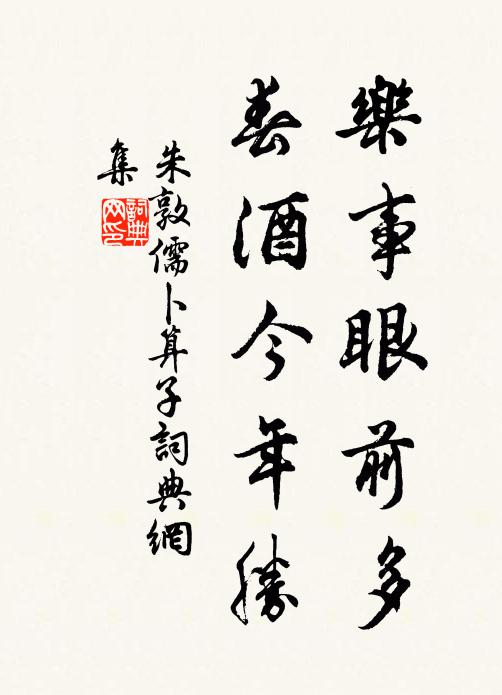 樂事眼前多
春酒今年勝
朱敦儒卜算子詞典網
集
詞典
网印